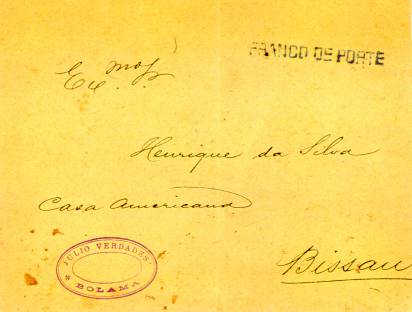 FRANCO DE PORTE
Exmo Sr.
Henrique da Silva
Casa Americana
Bissau
JULIO VERDADES
* BOLAMA *